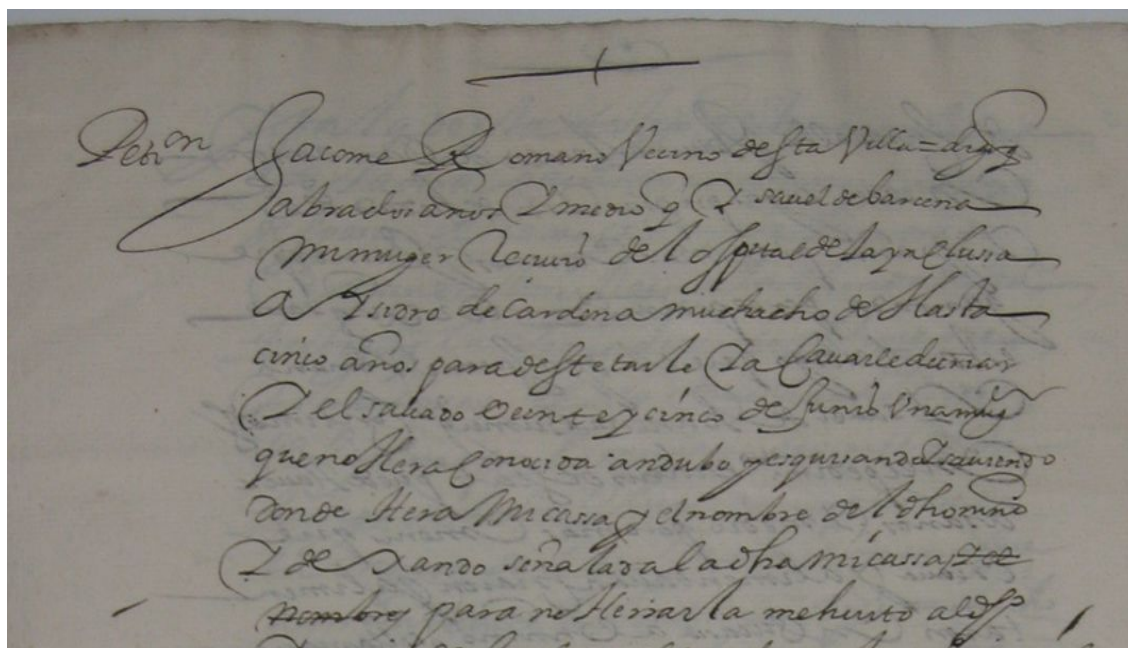 Petion Jacome Romano Vecino desta Villa = digo q
abra dos años y medio q ysavel de barcena
mi muger recivio del ospital de la ynclussa
a ysidro de Cardona muchacho de Hasta
cinco años para destetarle y acavarle de criar
y el savado veinte y cinco de Junio Una mugr
que no Hera Conocida andubo pesquisando y saviendo
donde Hera Mi cassa y el nombre del dho niño
y dexando señalada la dha mi cassa y el
nombre para no Herrarla me hurto al dho